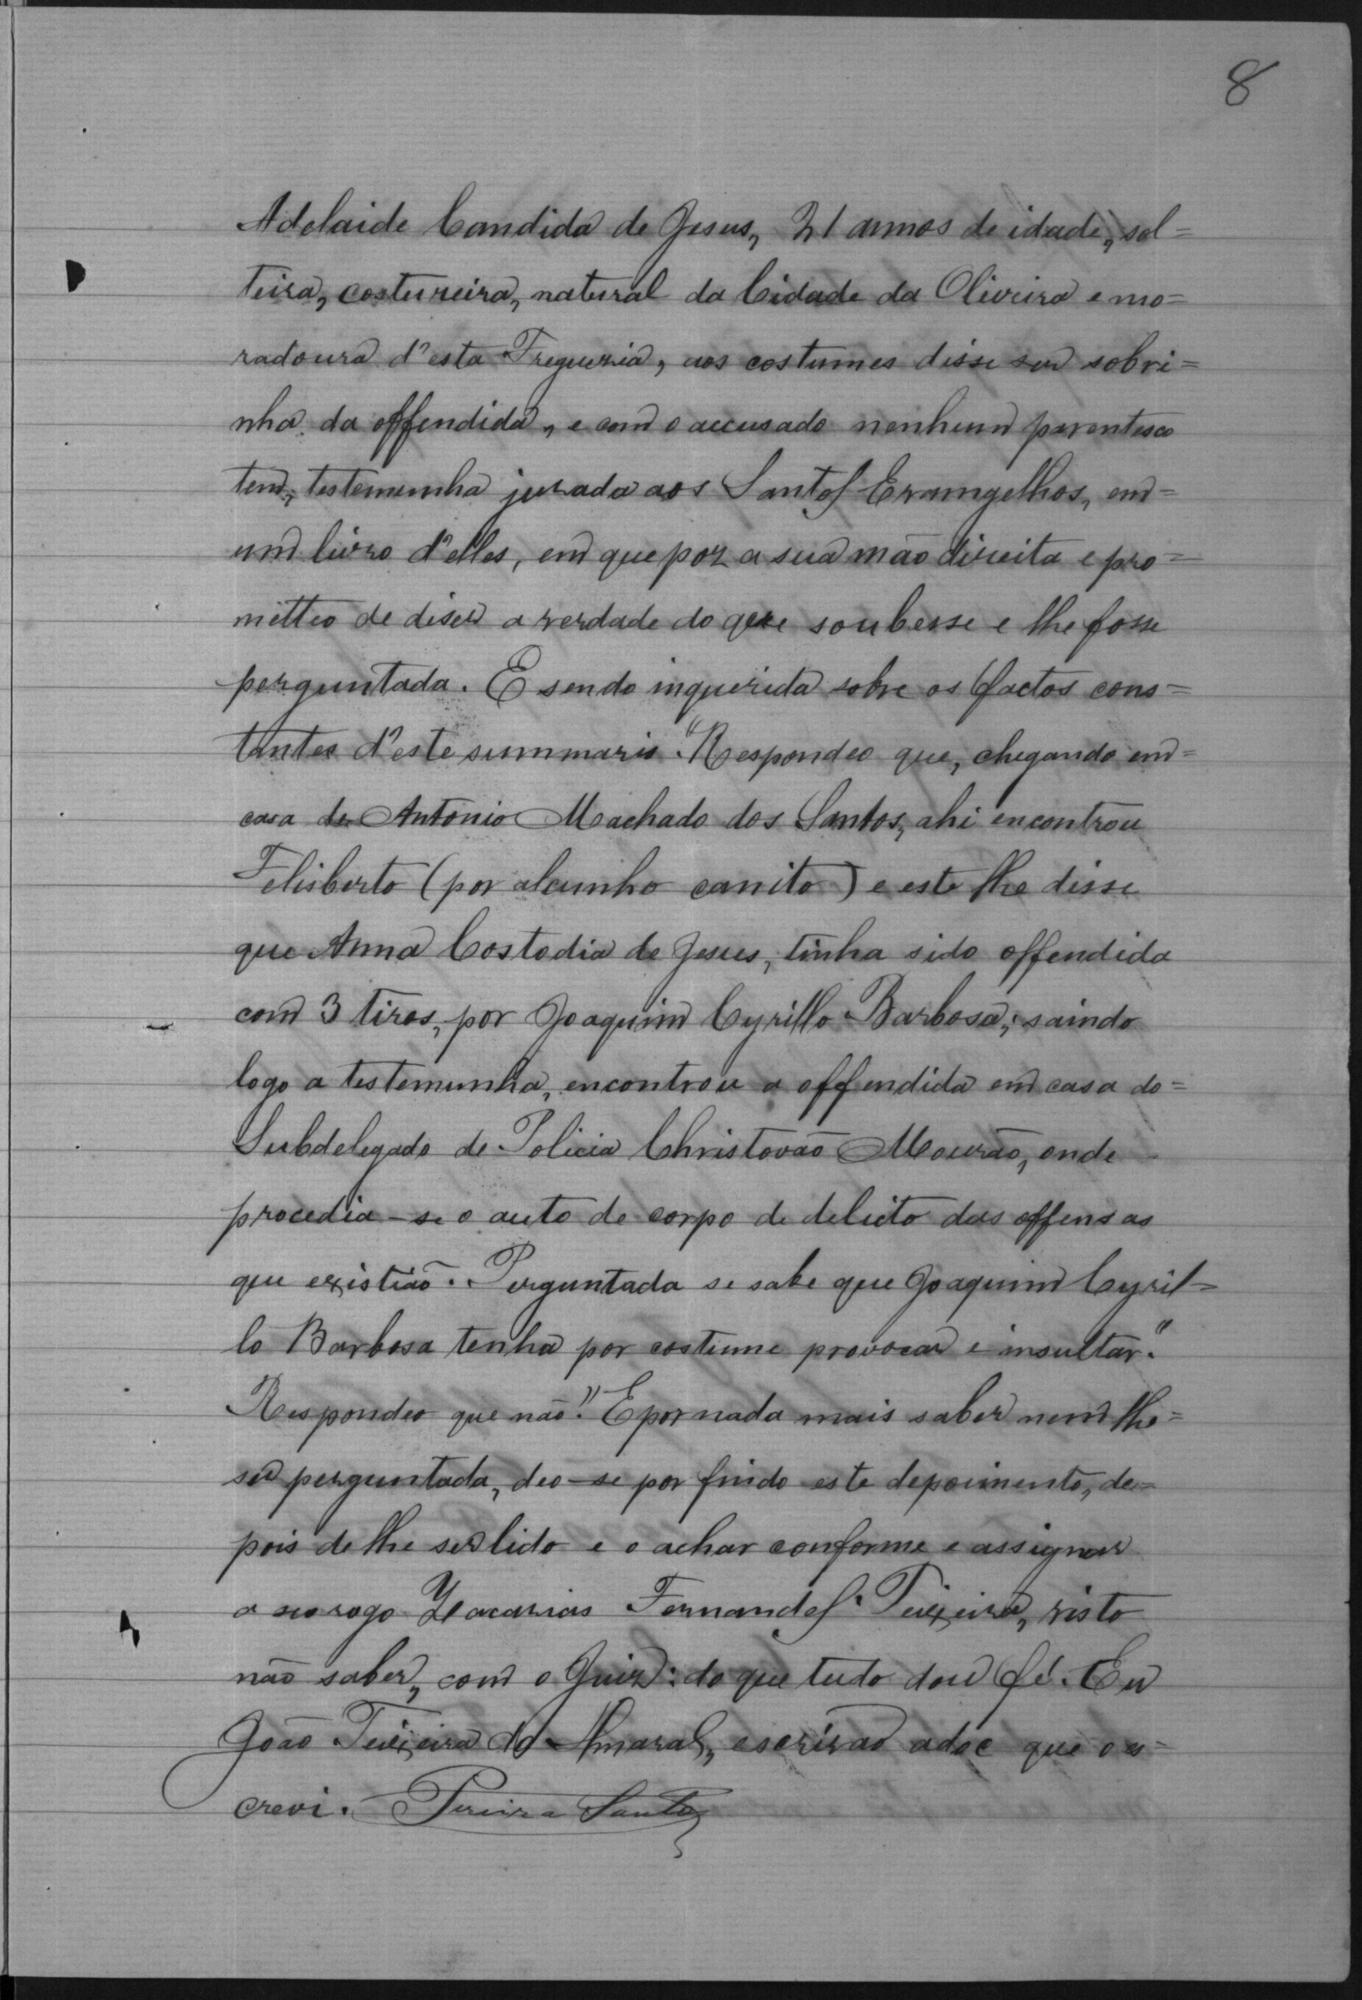 8
Adelaide Candida de Jesus, 21 annos de idade, sol=
teira, costureira, natural da Cidade da Oliveira e mo=
radoura d'esta Freguezia, aos costumes disse ser sobri=
nha da offendida, e com o accusado nenhum parentesco
tem, testemunha jurada aos Santos Evangelhos, em=
um livro d'elles, em que poz a sua mão direita e pro=
metteo de diser a verdade do que soubesse e lhe fosse
perguntada. E sendo inquerida sobre os factos cons=
tantes d'este summario "Respondeo que, chegando em=
casa de Antonio Machado dos Santos, ahi encontrou
Felisberto (por alcunho canito) e este lhe disse
que Anna Costodia de Jesus, tinha sido offendida
com 3 tiros, por Joaquim Cyrillo Barbosa; saindo
logo a testemunha, encontrou a offendida em casa do=
Subdelegado de Policia Christovão Mourão, onde
procedia-se o auto de corpo de delicto das offensas
que existião. Perguntada se sabe que Joaquim Cyril=
lo Barbosa tenha por costume provocar e insultar."
Respondeo que não." E por nada mais saber nem lhe=
ser perguntada, deo-se por findo este depoimento, de=
pois de lhe ser lido e o achar conforme e assignar
a seo rogo Zacarias Fernandes Teixeira, visto
não saber, com o Juiz: do que tudo dou fé. Eu
João Teixeira do Amaral, escrivão adoc que o es=
crevi. Pereira Santos